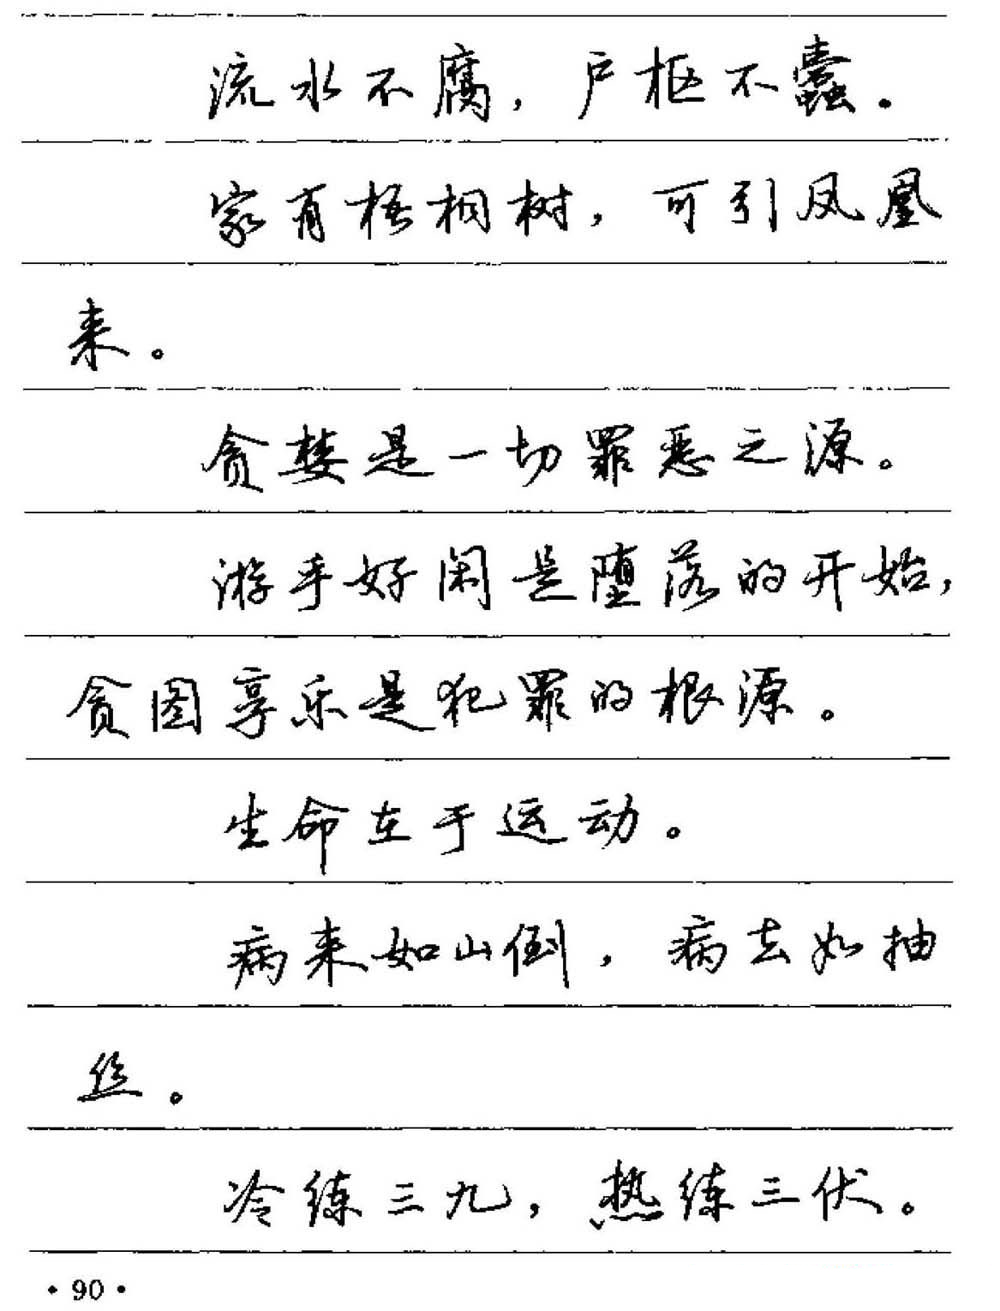 流水不腐，户枢不蠹。
家有梧桐树，可引凤凰
来。
贪婪是一切罪恶之源。
游手好闲是堕落的开始，
贪图享乐是犯罪的根源。
生命在于运动。
病来如山倒，病去如抽
丝。
冷练三九，热练三伏。
·90·